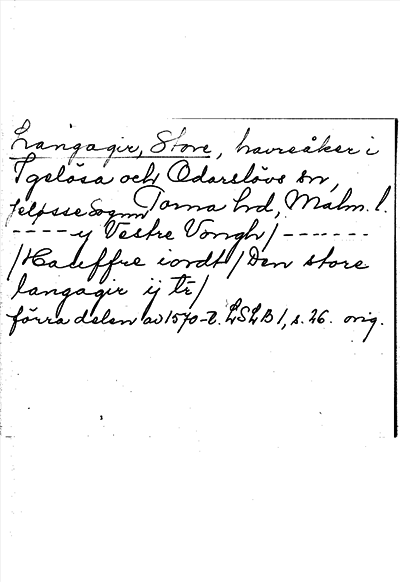 Langagir, Store, havreåker i
Igelösa och Odarslövs sn,
Jelösse Sogn Torna hd, Malm. l.
---- y Vestre Vongh / -------
/ Hauffre iordt / Den store
langagir ij tr /
förra delen av 1570-t. LSLB 1, s. 26. orig.